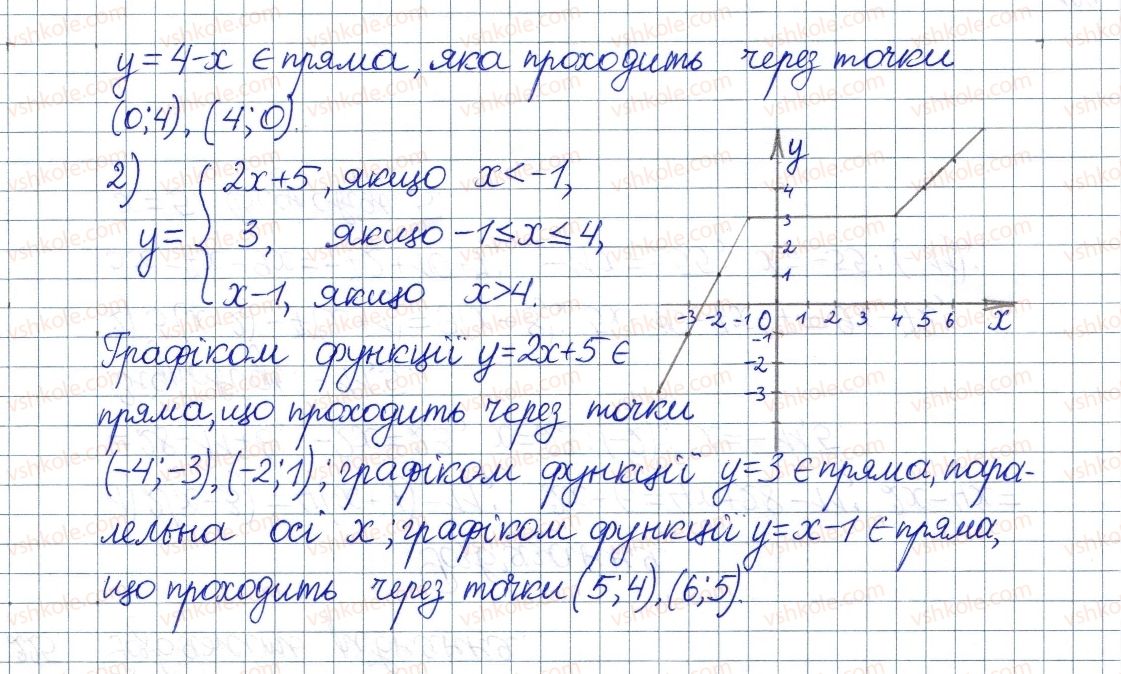 y = 4-x є пряма, яка проходить через точки
(0;4), (4;0).
2)
y = { 2x+5, якщо x < -1,
3, якщо -1 ≤ x ≤ 4,
x-1, якщо x > 4.
y
4
3
2
1
-3 -2 -1 0 1 2 3 4 5 6 x
-1
-2
-3
Графіком функції y = 2x+5 є
пряма, що проходить через точки
(-4;-3), (-2;1); графіком функції y = 3 є пряма, пара-
лельна осі x; графіком функції y = x-1 є пряма,
що проходить через точки (5;4), (6;5).
vshkole.com